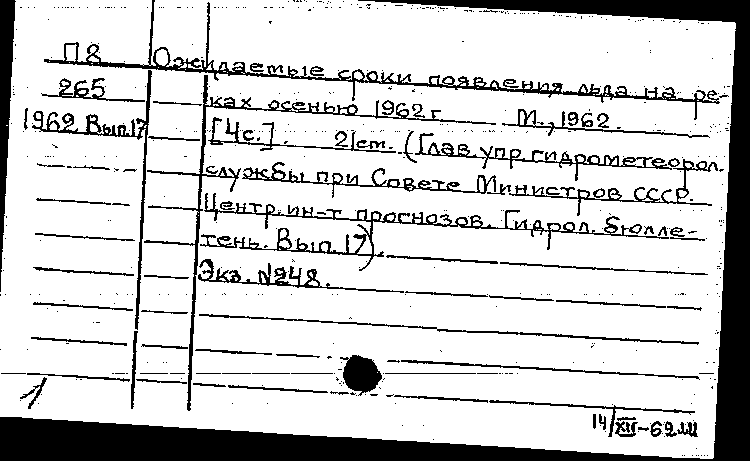 П8 Ожидаемые сроки появления льда на ре-
265 ках осенью 1962 г М., 1962.
1962 Вып.17 [4с.]. 21см. (Глав.упр.гидрометеорол.
службы при Совете Министров СССР.
Центр.ин-т прогнозов. Гидрол. бюлле-
тень. Вып. 17).
Экз. №248.
1
14/XII-62